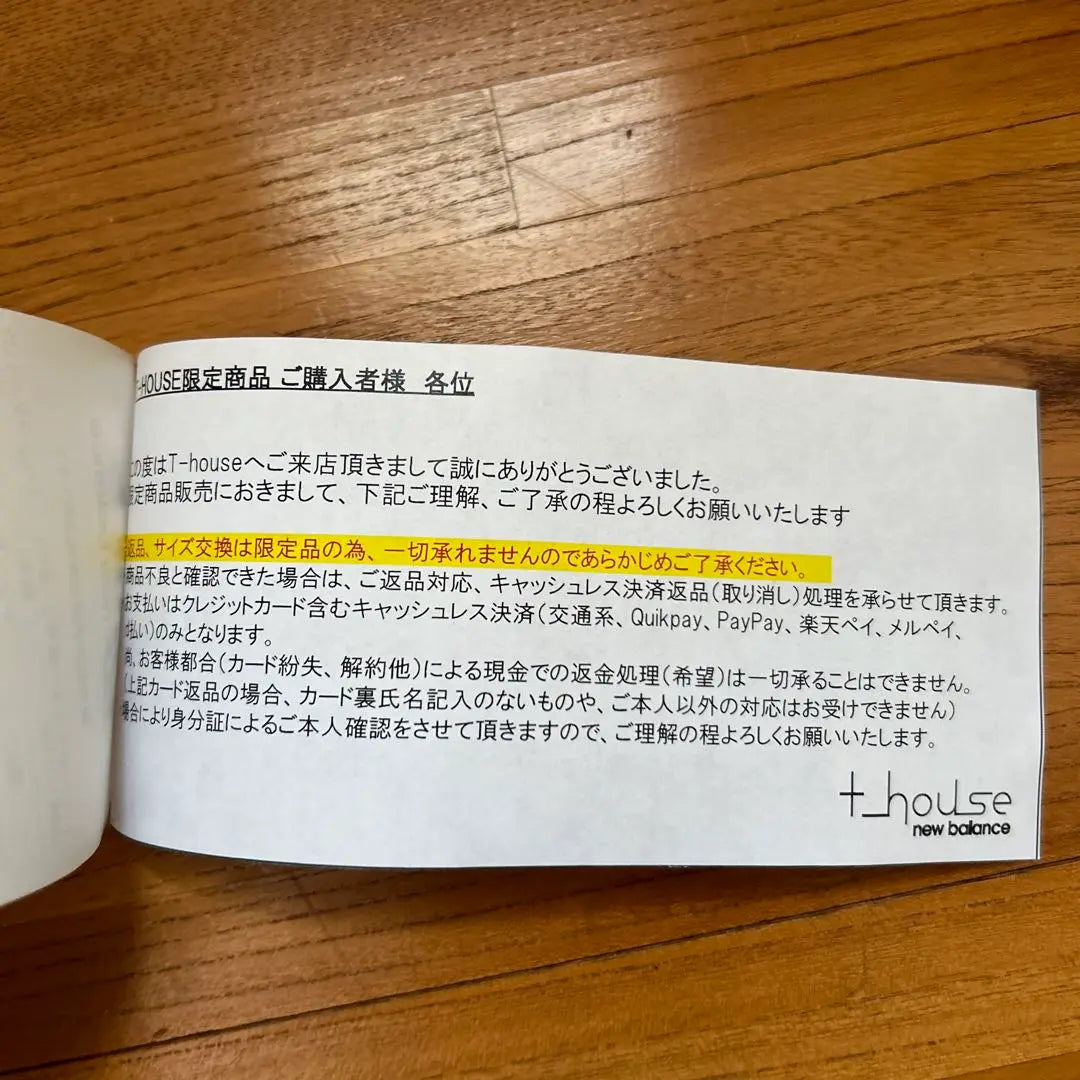 T-HOUSE限定商品 ご購入者様 各位
この度はT-houseへご来店頂きまして誠にありがとうございました。
限定商品販売におきまして、下記ご理解、ご了承の程よろしくお願いいたします
返品、サイズ交換は限定品の為、一切承れませんのであらかじめご了承ください。
商品不良と確認できた場合は、ご返品対応、キャッシュレス決済返品(取り消し)処理を承らせて頂きます。
お支払いはクレジットカード含むキャッシュレス決済(交通系、Quikpay、PayPay、楽天ペイ、メルペイ、
払い)のみとなります。
尚、お客様都合(カード紛失、解約他)による現金での返金処理(希望)は一切承ることはできません。
(上記カード返品の場合、カード裏氏名記入のないものや、ご本人以外の対応はお受けできません)
場合により身分証によるご本人確認をさせて頂きますので、ご理解の程よろしくお願いいたします。
t_house
new balance